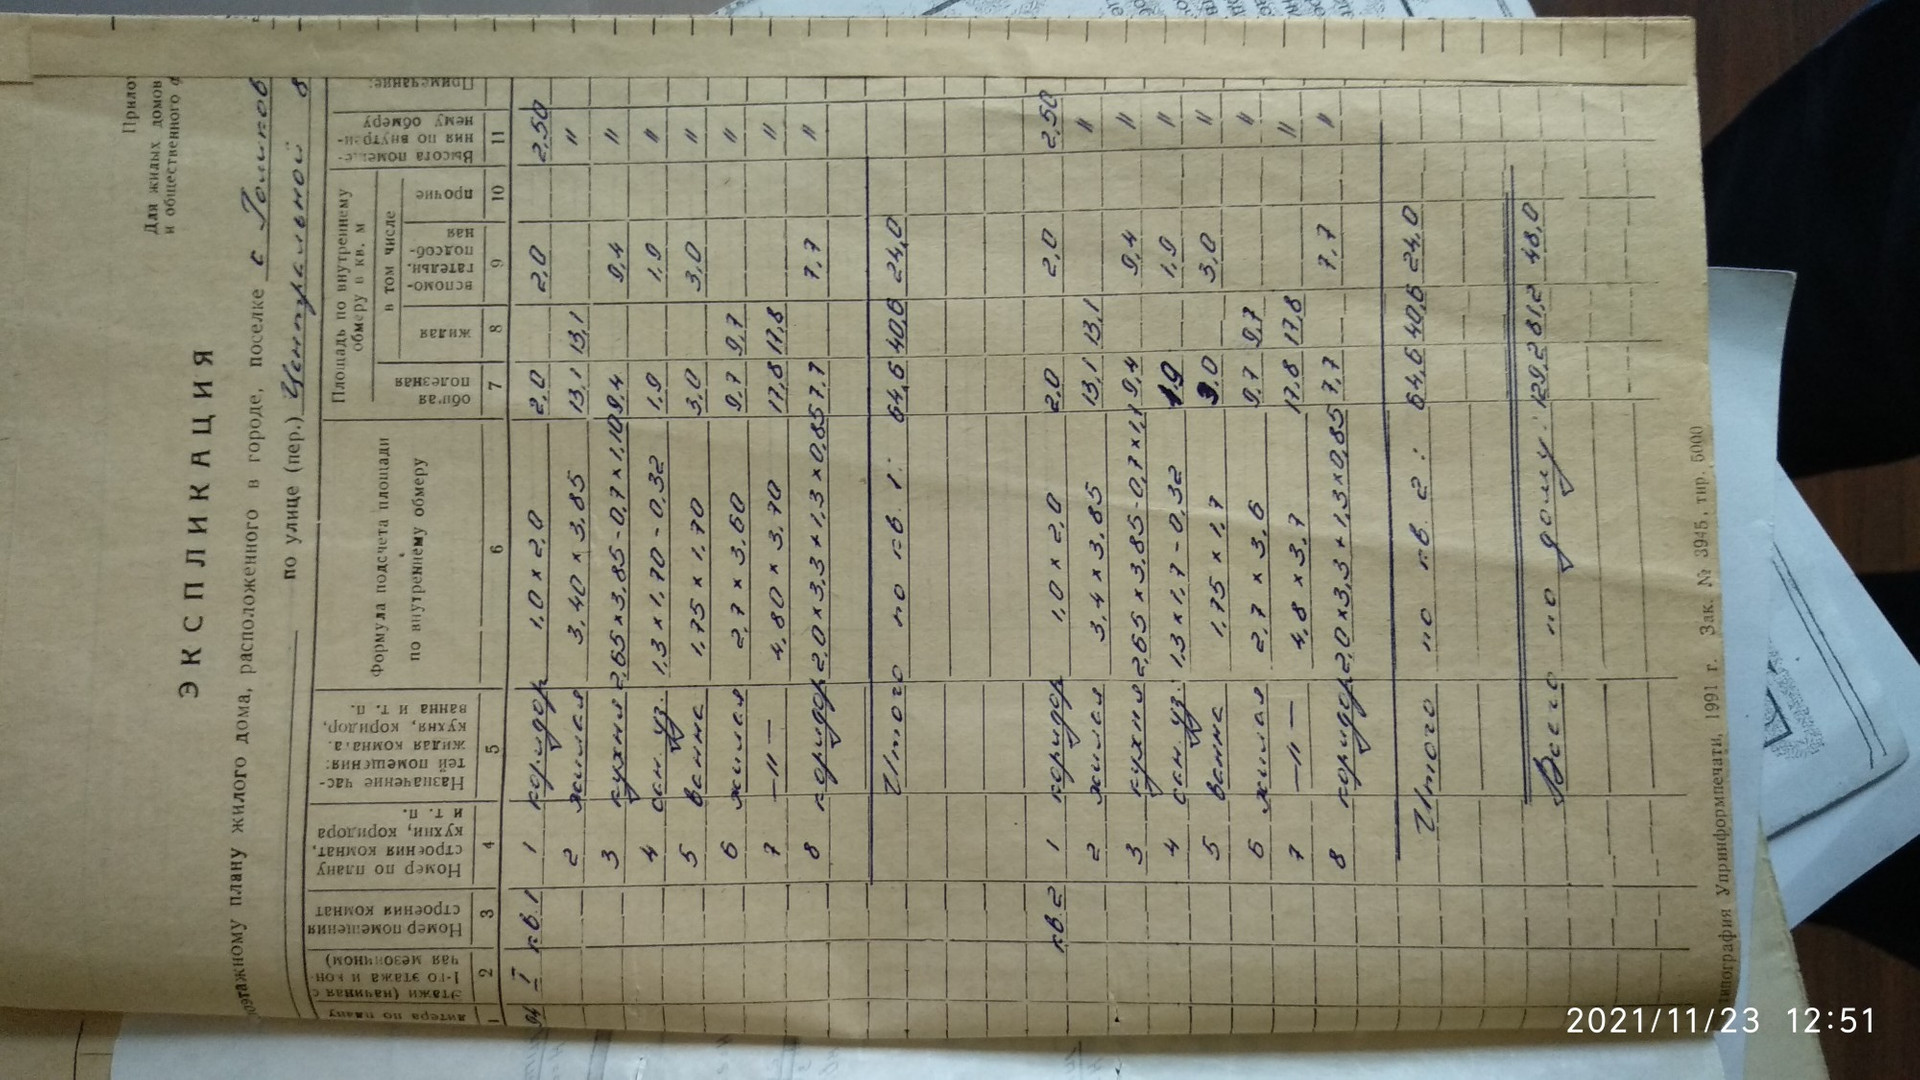 Для жилых домов
и общественного
ЭКСПЛИКАЦИЯ
поэтажному плану жилого дома, расположенного в городе, поселке с Голиков
по улице (пер.) Центральной 8
Литера по плану
Этажи (начиная с 1-го этажа и кончая мезонином)
Номер помещения строения комнат
Номер по плану строения комнат, кухни, коридора и т. п.
Назначение частей помещения: жилая комната, кухня, коридор, ванна и т. п.
Формула подсчета площади по внутреннему обмеру
Площадь по внутреннему обмеру в кв. м
в том числе
общая полезная
жилая
вспомогательн. подсобная
прочие
Высота помещения по внутреннему обмеру
Примечание:
1 2 3 4 5 6 7 8 9 10 11
I кв.1 1 коридор 1,0×2,0 2,0 2,0 2,50
2 жилая 3,40×3,85 13,1 13,1 "
3 кухня 2,65×3,85-0,7×1,10 9,4 9,4 "
4 сан.уз. 1,3×1,70-0,32 1,9 1,9 "
5 ванна 1,75×1,70 3,0 3,0 "
6 жилая 2,7×3,60 9,7 9,7 "
7 —"— 4,80×3,70 17,8 17,8 "
8 коридор 2,0×3,3+1,3×0,85 7,7 7,7 "
Итого по кв. 1: 64,6 40,6 24,0
кв.2 1 коридор 1,0×2,0 2,0 2,0 2,50
2 жилая 3,4×3,85 13,1 13,1 "
3 кухня 2,65×3,85-0,7×1,1 9,4 9,4 "
4 сан.уз. 1,3×1,7-0,32 1,9 1,9 "
5 ванна 1,75×1,7 3,0 3,0 "
6 жилая 2,7×3,6 9,7 9,7 "
7 —"— 4,8×3,7 17,8 17,8 "
8 коридор 2,0×3,3+1,3×0,85 7,7 7,7 "
Итого по кв. 2: 64,6 40,6 24,0
Всего по дому: 129,2 81,2 48,0
типография Упринформпечати, 1991 г. Зак. № 3945, тир. 5000
2021/11/23 12:51